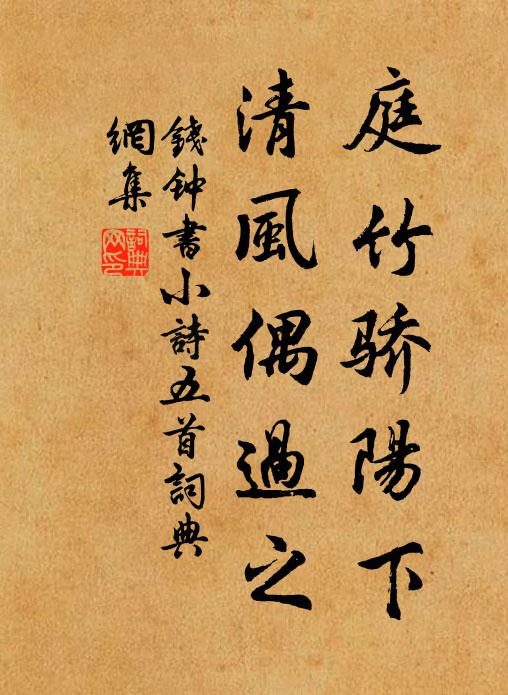 庭竹骄陽下
清風偶過之
錢钟書小詩五首詞典
網集
詞典
网印